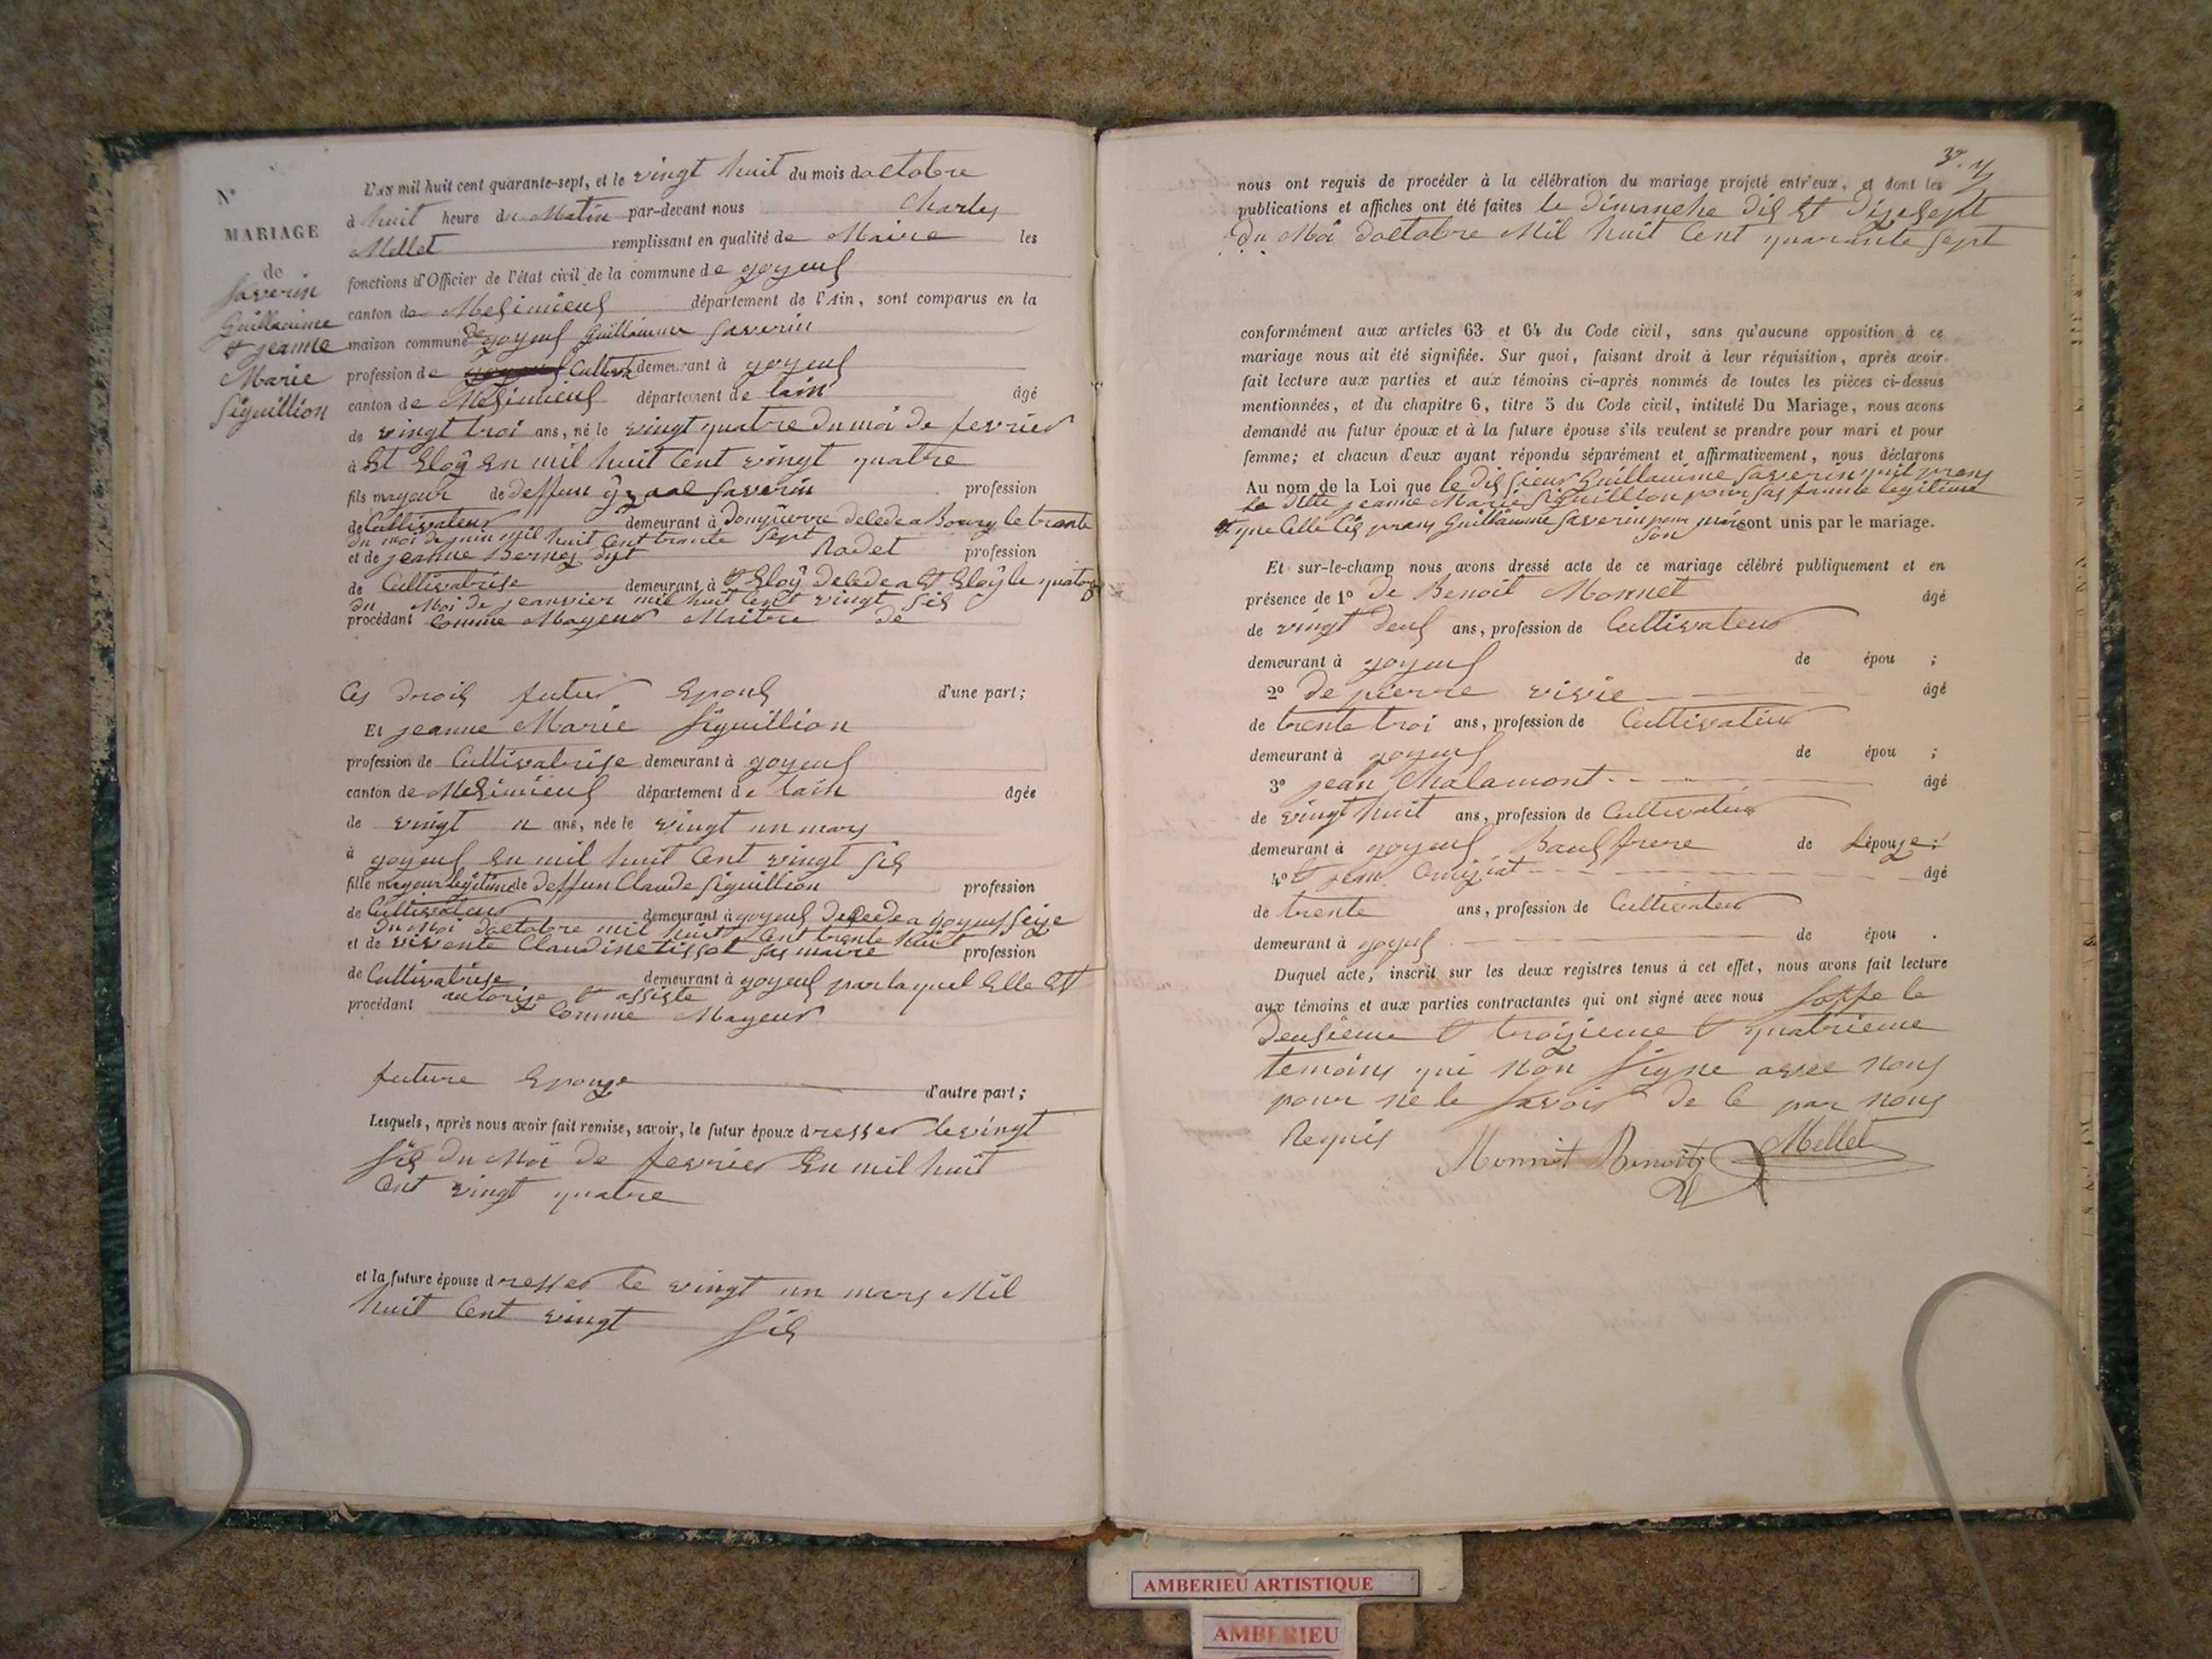 N°
MARIAGE
de
Saverin
Guillaume
et jeanne
Marie
Siguillion
L'AN mil huit cent quarante-sept, et le vingt huit du mois doctobre
à huit heure du Matin par-devant nous Charles
Mellet remplissant en qualité de Maire les
fonctions d'Officier de l'état civil de la commune de joyeux
canton de Meximieux département de l'Ain, sont comparus en la
maison commune de joyeux Guillaume Saverin
profession de demeurant à joyeux
canton de Meximieux département de lain âgé
de vingt troi ans, né le vingt quatre du moi de fevrier
à St Eloÿ En mil huit Cent vingt quatre
fils mayeur de deffun Saverin profession
de Cultivateur demeurant à Dompierre deledea Bourg le trente
du moi de juin mil huit Cent trente Sept
et de jeanne Bernez dyt Radet profession
de Cultivatrise demeurant à St Eloÿ deledea St Eloÿ le quatorze
du Moi de jeanvier mil huit Cent vingt Six
procédant Comme Mayeur Maitre de
Ces Droix futur Epoux d'une part;
Et jeanne Marie Siguillion
profession de Cultivatrise demeurant à joyeux
canton de Meximieux département de lain âgée
de vingt n ans, née le vingt un mars
à joyeux En mil huit Cent vingt Six
fille mayeur legitime de deffun Claude Siguillion profession
de Cultivateur demeurant à joyeux deledea joyeux Seize
du Moi doctobre mil huit Cent trente huit
et de vivente Claudine tissot sas maire profession
de Cultivatrise demeurant à joyeux par laquel Elle Est
autorize et assiste
procédant Comme Mayeur
future Epouze d'autre part;
Lesquels, après nous avoir fait remise, savoir, le futur époux dresser le vingt
Six du Moi de fevrier En mil huit
Cent vingt quatre
et la future épouse dresser le vingt un mars Mil
huit Cent vingt Six
nous ont requis de procéder à la célébration du mariage projeté entr'eux, et dont les
publications et affiches ont été faites le dimanche dix Et dizesept
du Moi doctobre Mil huit Cent quarante Sept
conformément aux articles 63 et 64 du Code civil, sans qu'aucune opposition à ce
mariage nous ait été signifiée. Sur quoi, faisant droit à leur réquisition, après avoir
fait lecture aux parties et aux témoins ci-après nommés de toutes les pièces ci-dessus
mentionnées, et du chapitre 6, titre 5 du Code civil, intitulé Du Mariage, nous avons
demandé au futur époux et à la future épouse s'ils veulent se prendre pour mari et pour
femme; et chacun d'eux ayant répondu séparément et affirmativement, nous déclarons
Au nom de la Loi que le dis Sieur Guillaume Saverin quil prens
la ditte jeanne Marie Siguillion pour sas famme legitime
et que Celle Cis prens Guillaume Saverin pour Son sont unis par le mariage.
Et sur-le-champ nous avons dressé acte de ce mariage célébré publiquement et en
présence de 1° de Benoit Monnet âgé
de vingt deux ans, profession de Cultivateur
demeurant à joyeux de épou ;
2° de pierre vivie âgé
de trente troi ans, profession de Cultivateur
demeurant à joyeux de épou ;
3° jean Chalamont âgé
de vingt huit ans, profession de Cultivateur
demeurant à joyeux Baux frere de Lépouze;
4° Et jean âgé
de trente ans, profession de Cultivateur
demeurant à joyeux de épou .
Duquel acte, inscrit sur les deux registres tenus à cet effet, nous avons fait lecture
aux témoins et aux parties contractantes qui ont signé avec nous Soffe le
deuxieme Et troizieme Et quatrieme
temoins qui non Signe avec nous
pour ne le Savoir de Ce par nous
Requis
Monnet Benoit Mellet
AMBERIEU ARTISTIQUE
AMBERIEU